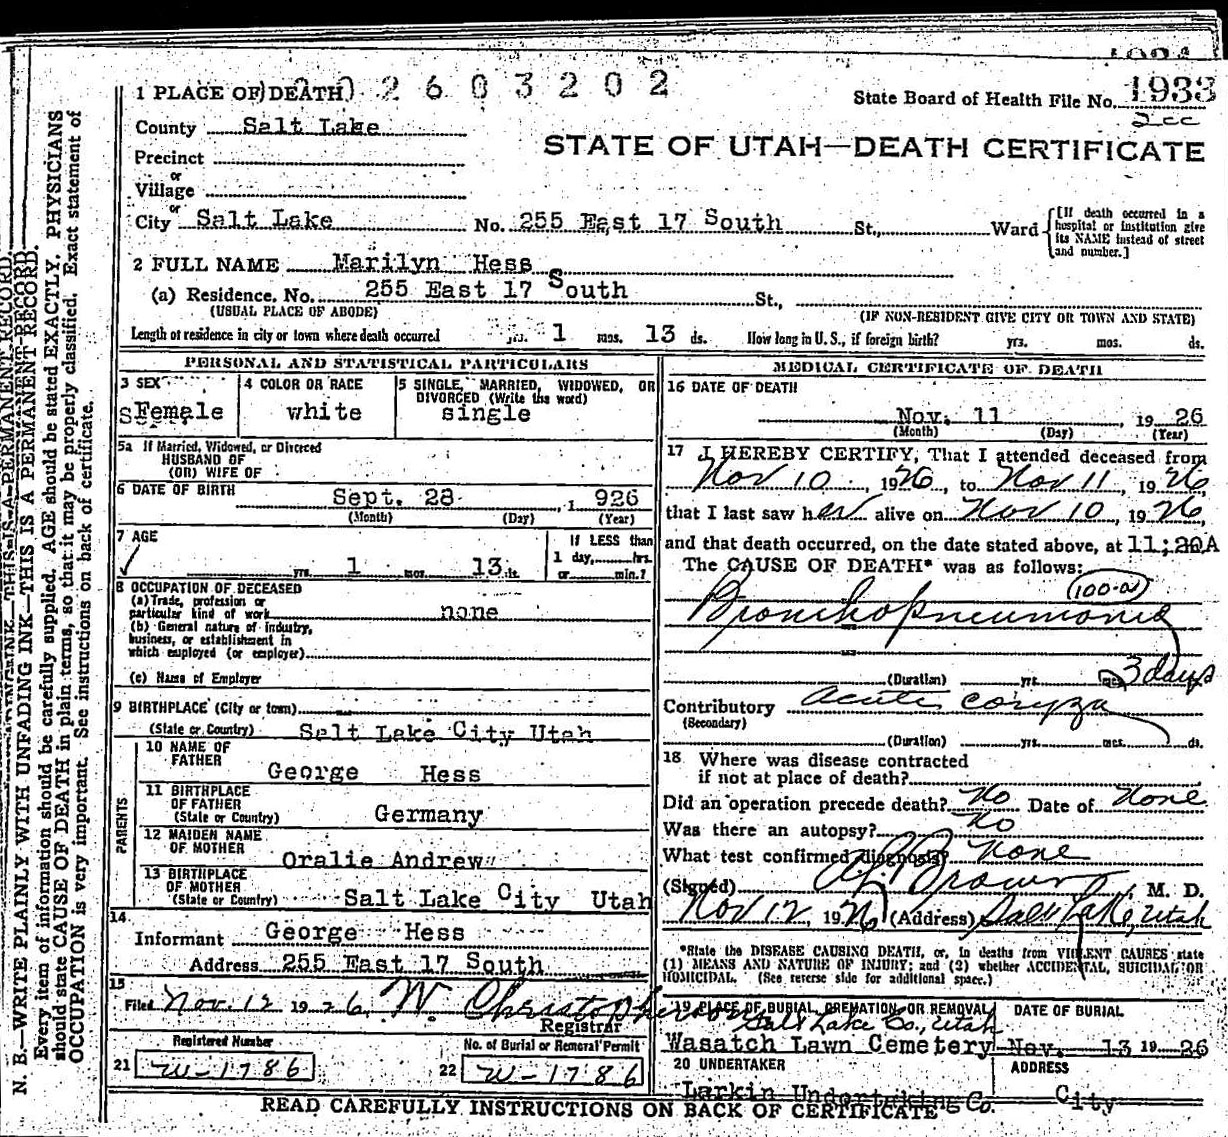 1 PLACE OF DEATH 2 6 0 3 2 0 2
State Board of Health File No. 1933
2cc
County Salt Lake
STATE OF UTAH—DEATH CERTIFICATE
Precinct
or
Village
or
City Salt Lake No. 255 East 17 South St., Ward [If death occurred in a hospital or institution give its NAME instead of street and number.]
2 FULL NAME Marilyn Hess
(a) Residence. No. 255 East 17 South St.,
(USUAL PLACE OF ABODE) (IF NON-RESIDENT GIVE CITY OR TOWN AND STATE)
Length of residence in city or town where death occurred yrs. 1 mos. 13 ds. How long in U. S., if foreign birth? yrs. mos. ds.
PERSONAL AND STATISTICAL PARTICULARS
3 SEX Female
4 COLOR OR RACE white
5 SINGLE, MARRIED, WIDOWED, OR DIVORCED (Write the word) single
5a If Married, Widowed, or Divorced
HUSBAND OF
(OR) WIFE OF
6 DATE OF BIRTH Sept. 28 1926
(Month) (Day) (Year)
7 AGE yrs. 1 mos. 13 ds. If LESS than
1 day, hrs.
or min.?
8 OCCUPATION OF DECEASED
(a) Trade, profession or
particular kind of work none
(b) General nature of industry,
business, or establishment in
which employed (or employer)
(c) Name of Employer
9 BIRTHPLACE (City or town)
(State or Country) Salt Lake City Utah
PARENTS
10 NAME OF
FATHER George Hess
11 BIRTHPLACE
OF FATHER
(State or Country) Germany
12 MAIDEN NAME
OF MOTHER Oralie Andrew
13 BIRTHPLACE
OF MOTHER
(State or Country) Salt Lake City Utah
14
Informant George Hess
Address 255 East 17 South
15
Filed Nov. 12 1926, W. Christopherson
Registrar
Registered Number No. of Burial or Removal Permit
21 W-1786 22 W-1786
MEDICAL CERTIFICATE OF DEATH
16 DATE OF DEATH
Nov. 11 1926
(Month) (Day) (Year)
17 I HEREBY CERTIFY, That I attended deceased from
Nov 10, 1926, to Nov 11, 1926,
that I last saw her alive on Nov 10, 1926,
and that death occurred, on the date stated above, at 11:20A
The CAUSE OF DEATH* was as follows:
100-a
Bronchopneumonia
(Duration) yrs. mos. 3 days
Contributory acute coryza
(Secondary)
(Duration) yrs. mos. ds.
18 Where was disease contracted
if not at place of death?
Did an operation precede death? No Date of None
Was there an autopsy? No
What test confirmed diagnosis? None
(Signed) Brown, M. D.
Nov 12, 1926 (Address) Salt Lake, Utah
*State the DISEASE CAUSING DEATH, or, in deaths from VIOLENT CAUSES state
(1) MEANS AND NATURE OF INJURY; and (2) whether ACCIDENTAL, SUICIDAL OR
HOMICIDAL. (See reverse side for additional space.)
19 PLACE OF BURIAL, CREMATION OR REMOVAL DATE OF BURIAL
Salt Lake Co., Utah
Wasatch Lawn Cemetery Nov. 13 1926
20 UNDERTAKER ADDRESS
Larkin Undertaking Co. City
READ CAREFULLY INSTRUCTIONS ON BACK OF CERTIFICATE
N. B.—WRITE PLAINLY WITH UNFADING INK—THIS IS A PERMANENT RECORD.
Every item of information should be carefully supplied. AGE should be stated EXACTLY. PHYSICIANS
should state CAUSE OF DEATH in plain terms, so that it may be properly classified. Exact statement of
OCCUPATION is very important. See instructions on back of certificate.